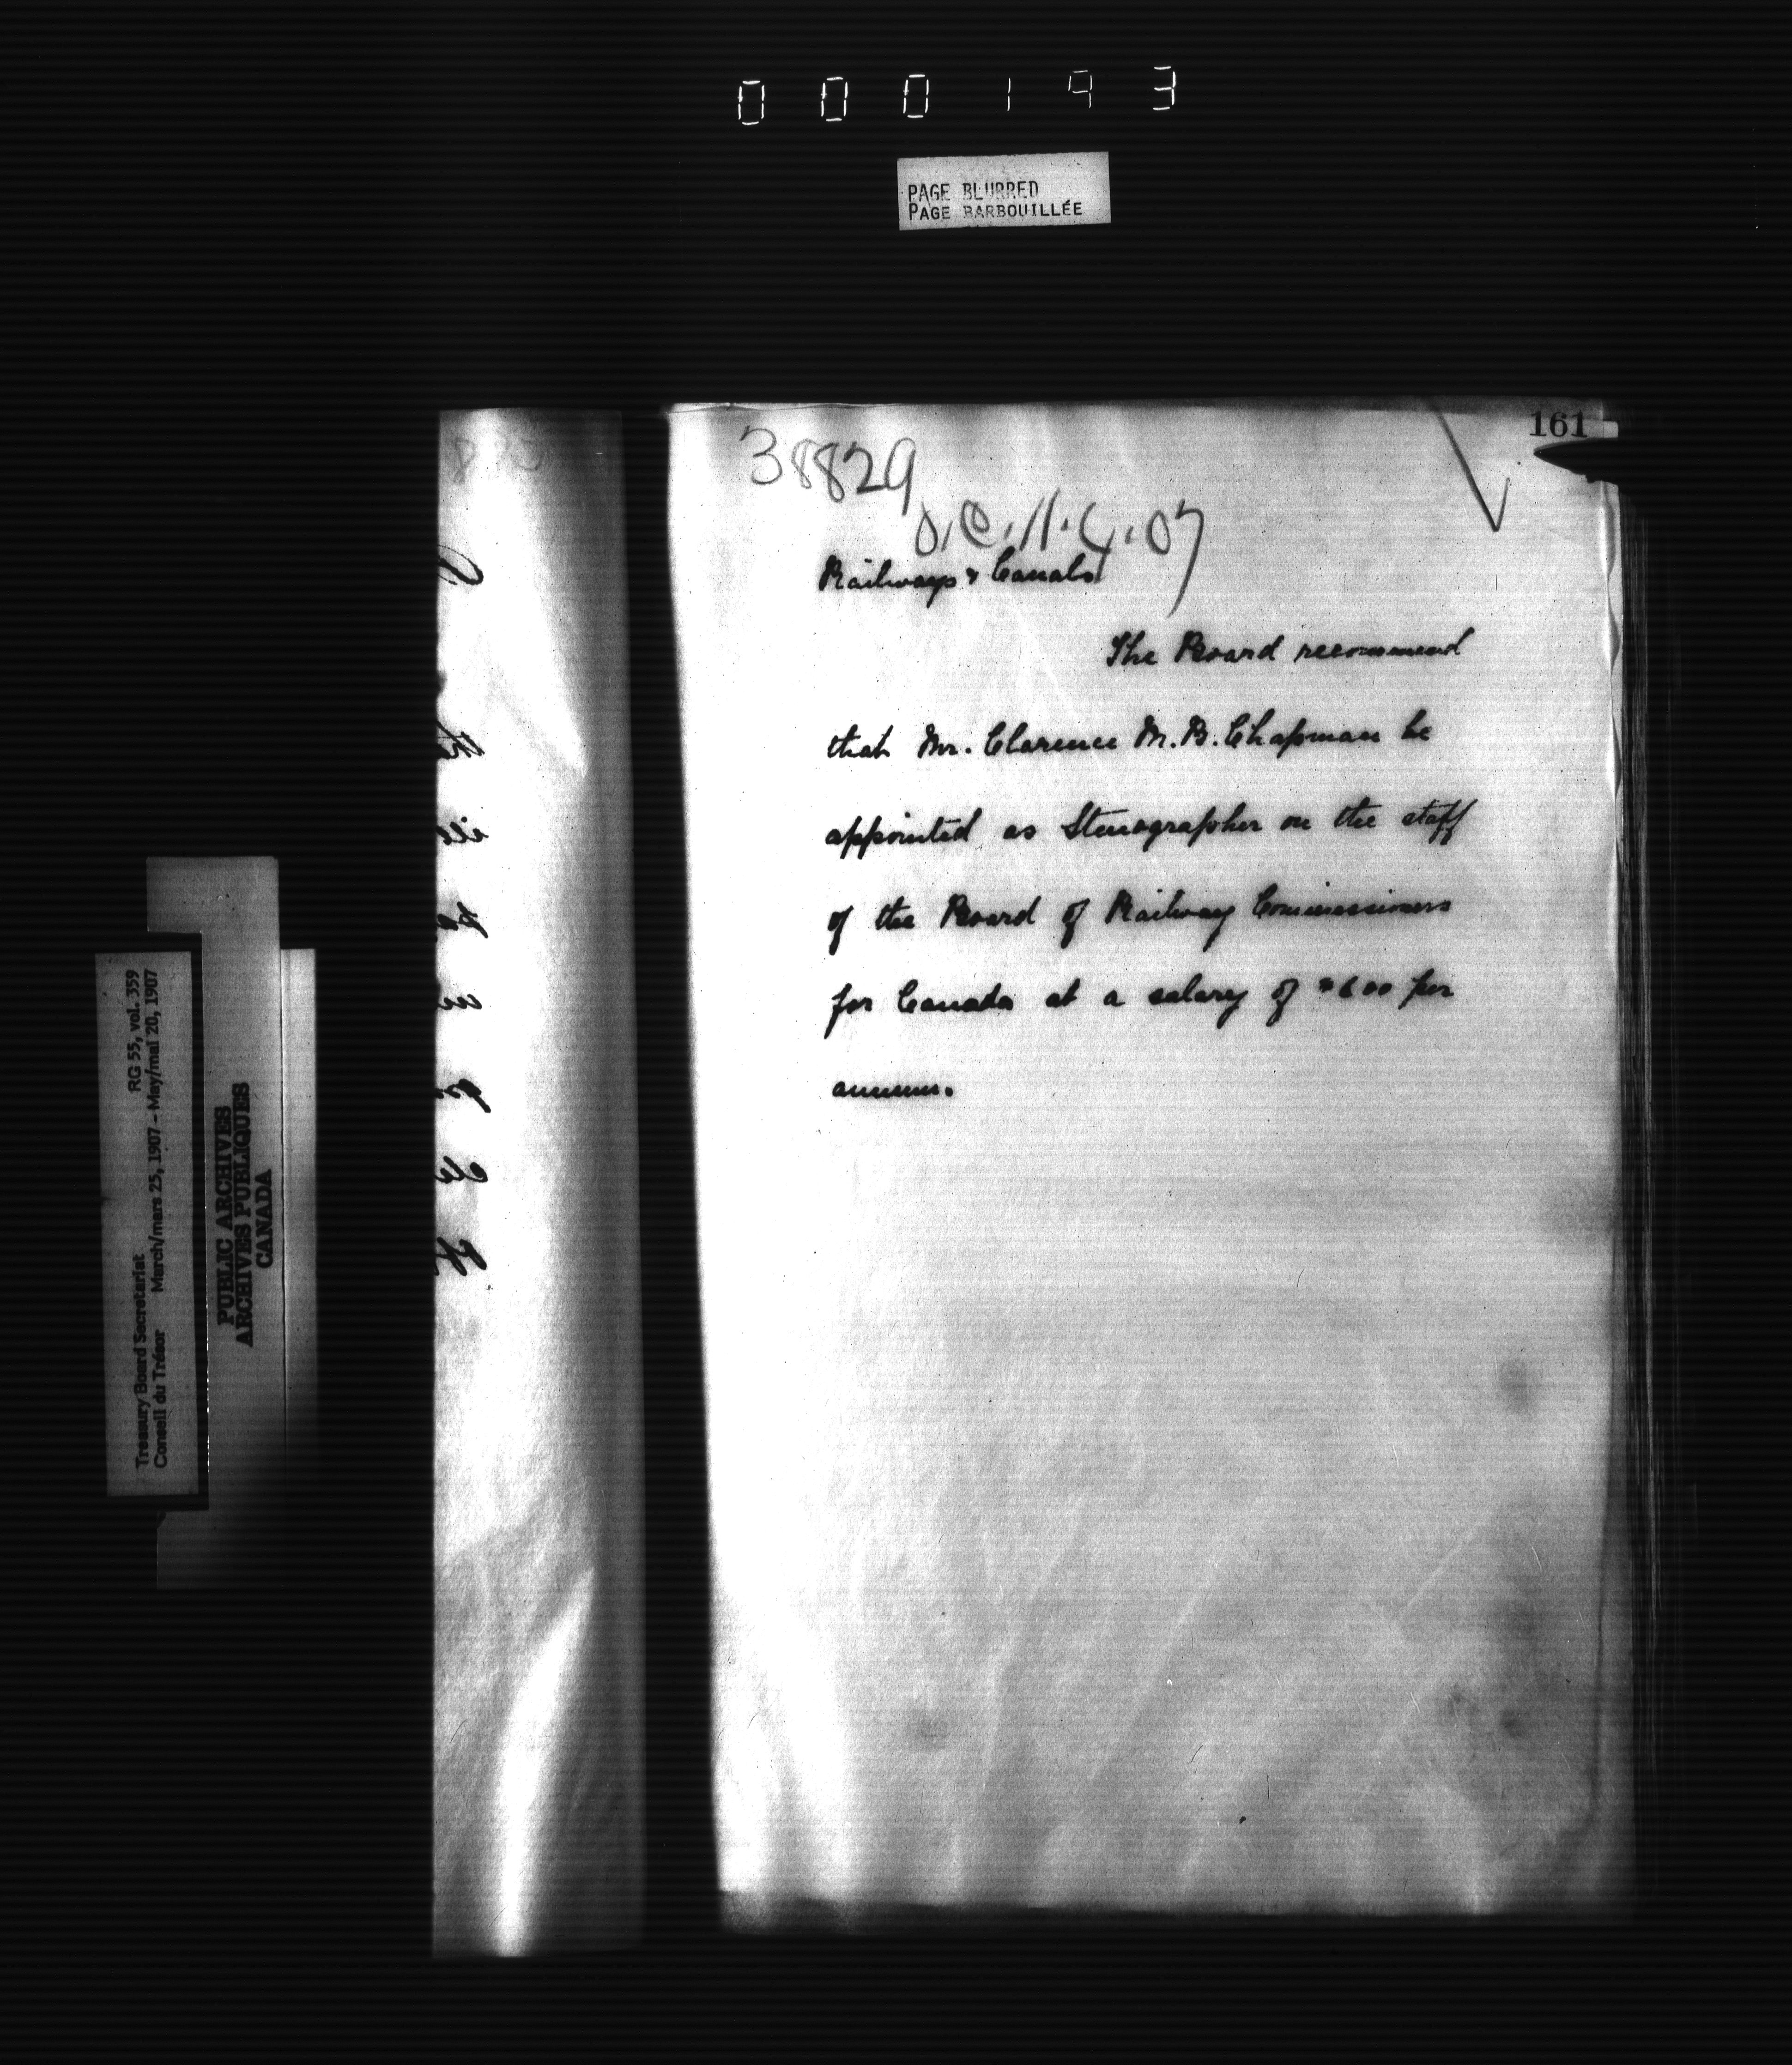 000193
PAGE BLURRED
PAGE BARBOUILLÉE
161
38829
O.C. 11.4.07
Railways & Canals
The Board recommend
that Mr. Clarence M. B. Chapman be
appointed as Stenographer on the staff
of the Board of Railway Commissioners
for Canada at a salary of $600 per
annum.
Treasury Board Secretariat RG 55, vol. 359
Conseil du Trésor March/mars 25, 1907 - May/mai 20, 1907
PUBLIC ARCHIVES
ARCHIVES PUBLIQUES
CANADA